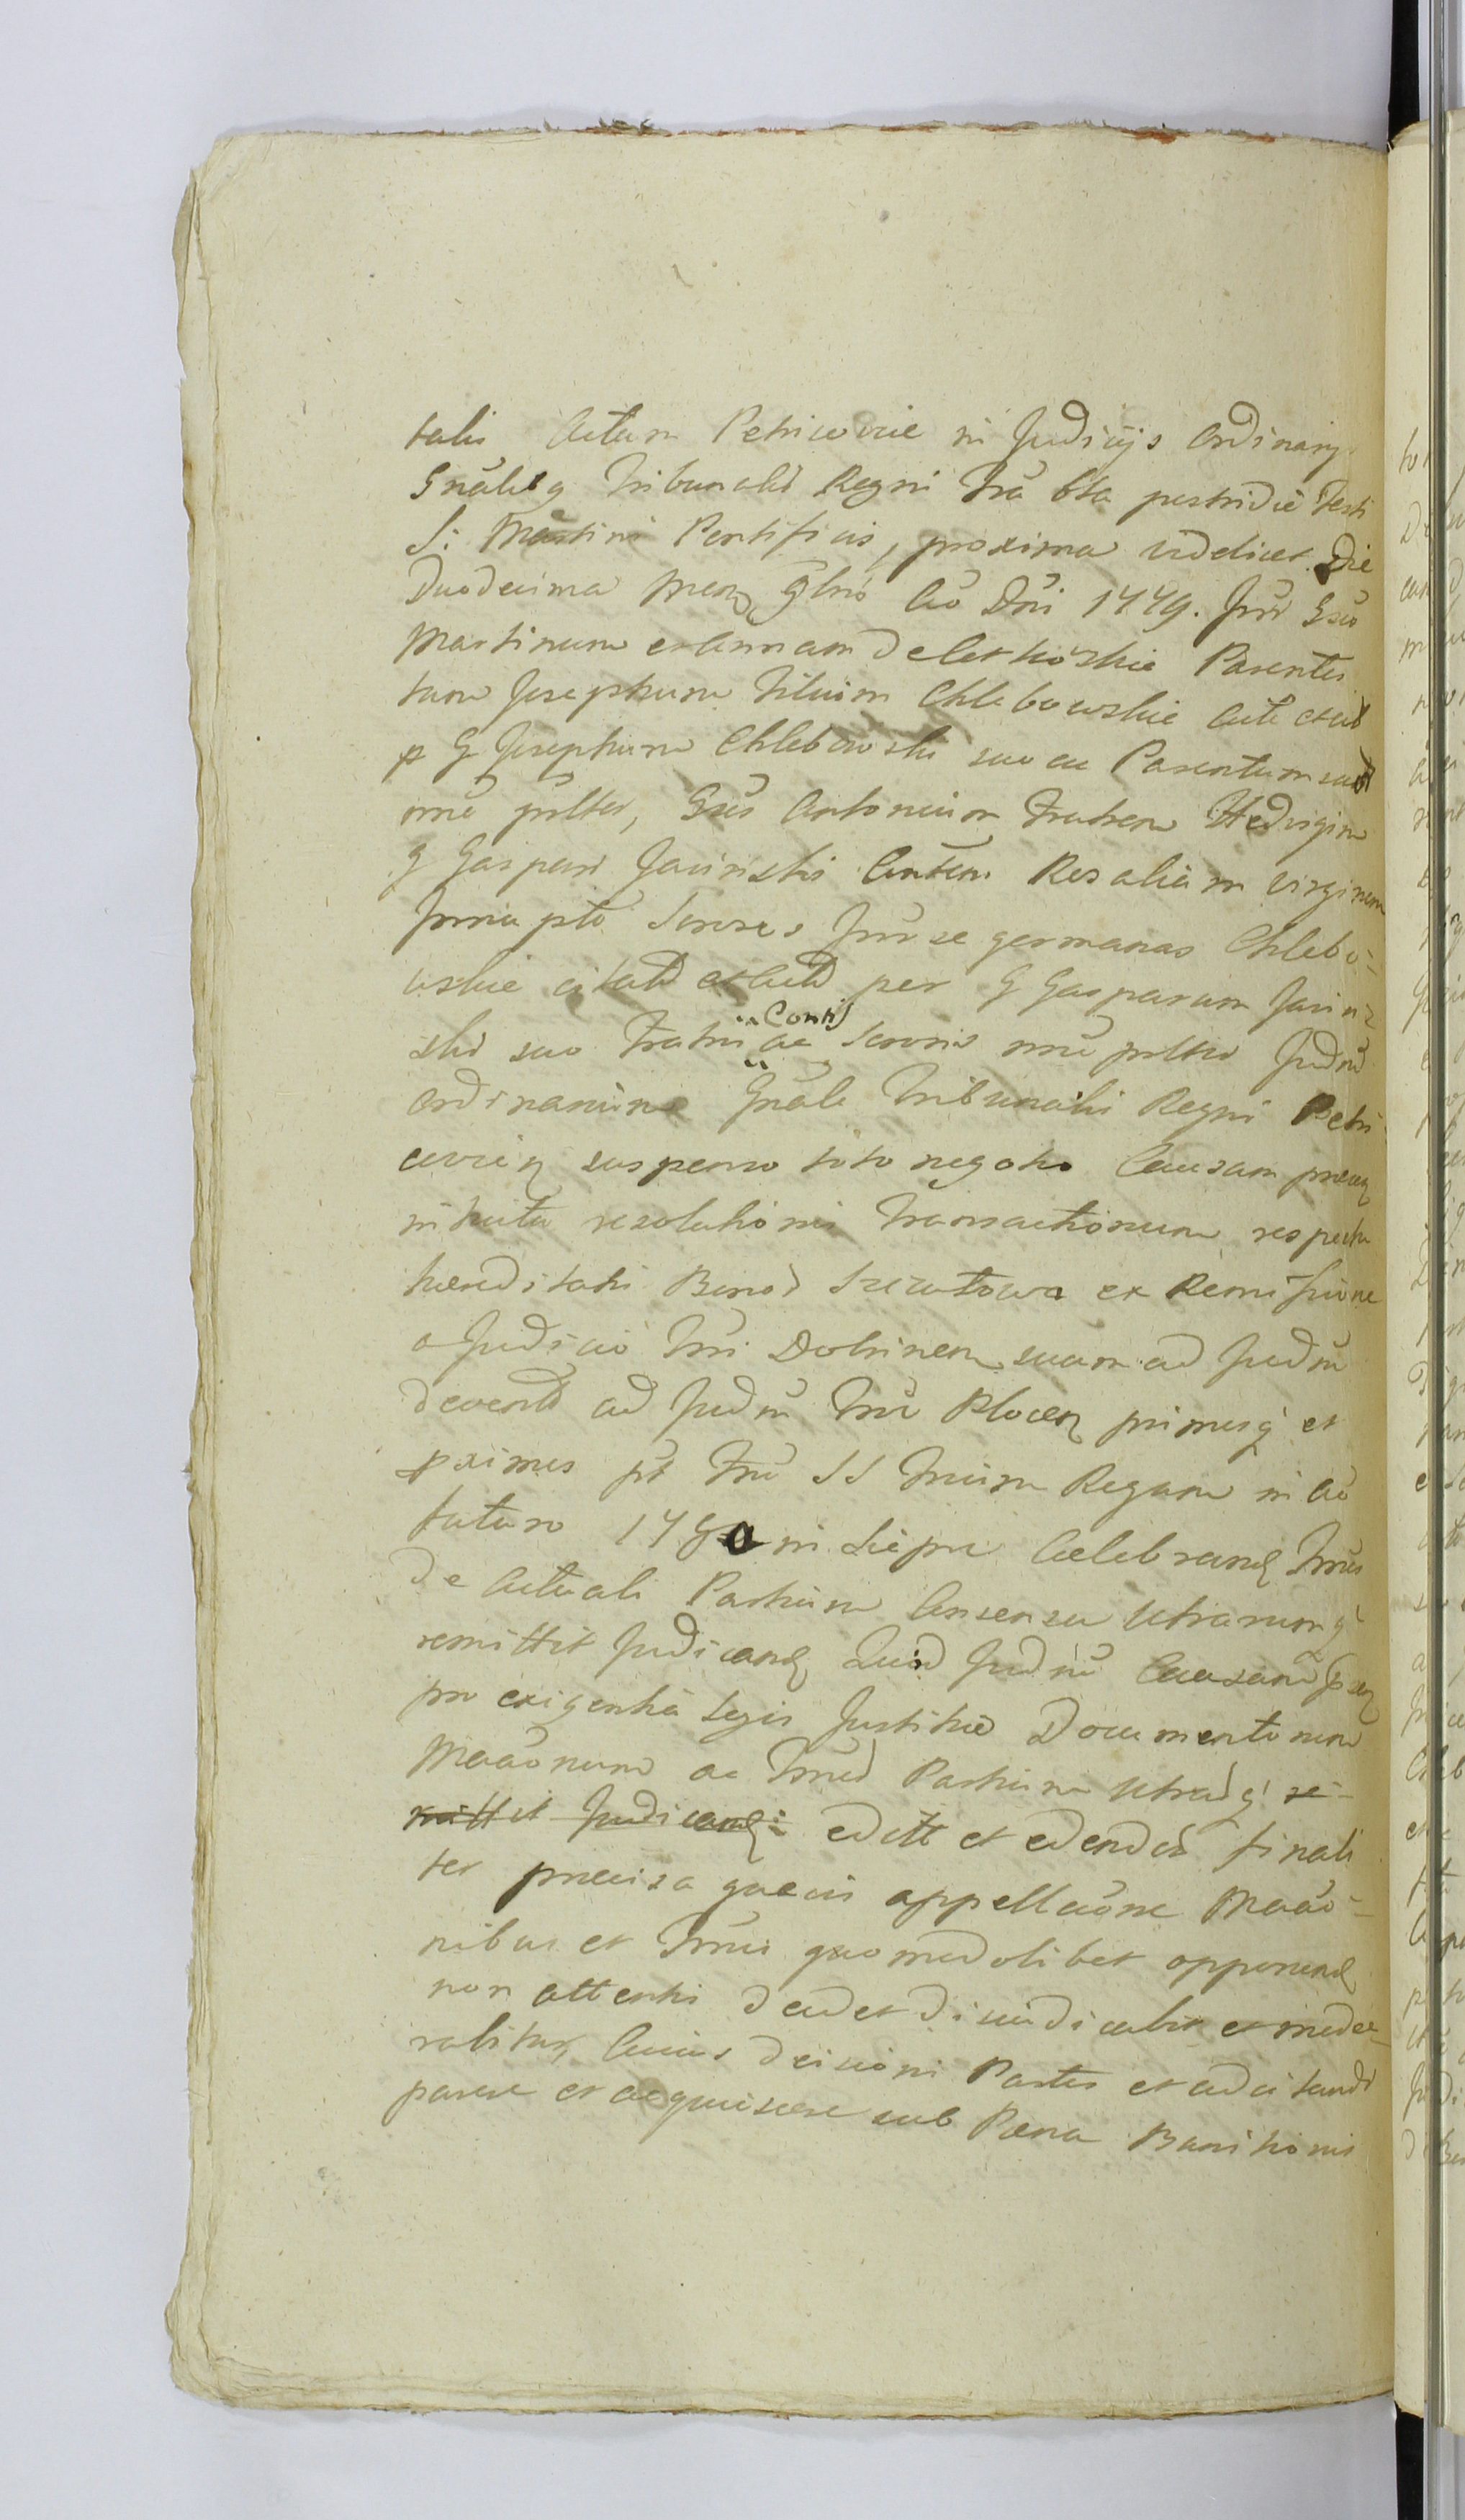 talis Actum Petricoviae in Judicijs Ordinarijs
Gnãlibq Tribunalis Regni Frã 6ta postridie Festi
S: Martini Pontificis, proxima videlicet Die
Duodecima Mens 9bris Aõ Dñi 1779. Inr Gsõ
Martinum et Annam de Lethoskie Parentes
tum Josephum Filium Chlebowskie Act
p G Josephum Chlebowski suo ac Parentum suor
nnẽ Gsũs Antonium Fratrem Hedvigim
G Gaspari Jasinski Contem Rosaliam Virginem
Sorores Inr se germanas Chlebo-
wskie citat per G Gasparum Jasin-
ski suo Fratri ac Conts Sororis nnẽ Judm
Ordinarium Gnãle Tribunalis Regni Petri-
covien suspenso toto negotio Causam
intuitu resolutionis Transactionum respectu
haereditatis Bonor Szczutowa ex Remissione
a Judicio Tri Dobrinen suam ad Judm
devent ad Judm Tre Plocen primusq et
pximus pt Frũ SS Trium Regum in Aõ
futuro 1780 in Lipno Celebrand Tmus
de Actuali Partium Consensu Utrarumq
remittit Judicand Quod Judm Causam
pro exigentia Legis Justitiae Documentorum
Moãonum ac Tmus Partium Utraq re-
mittit Judicand: editt et edendas finali
ter praecisa quavis appellaõne Moão-
nibus et Tmis quomodolibet opponend
non attentis decidet dijudicabit et mode-
rabitur, Cuius decisioni Partes et adcitandi
parere et acquiescere sub Paena Banitionis